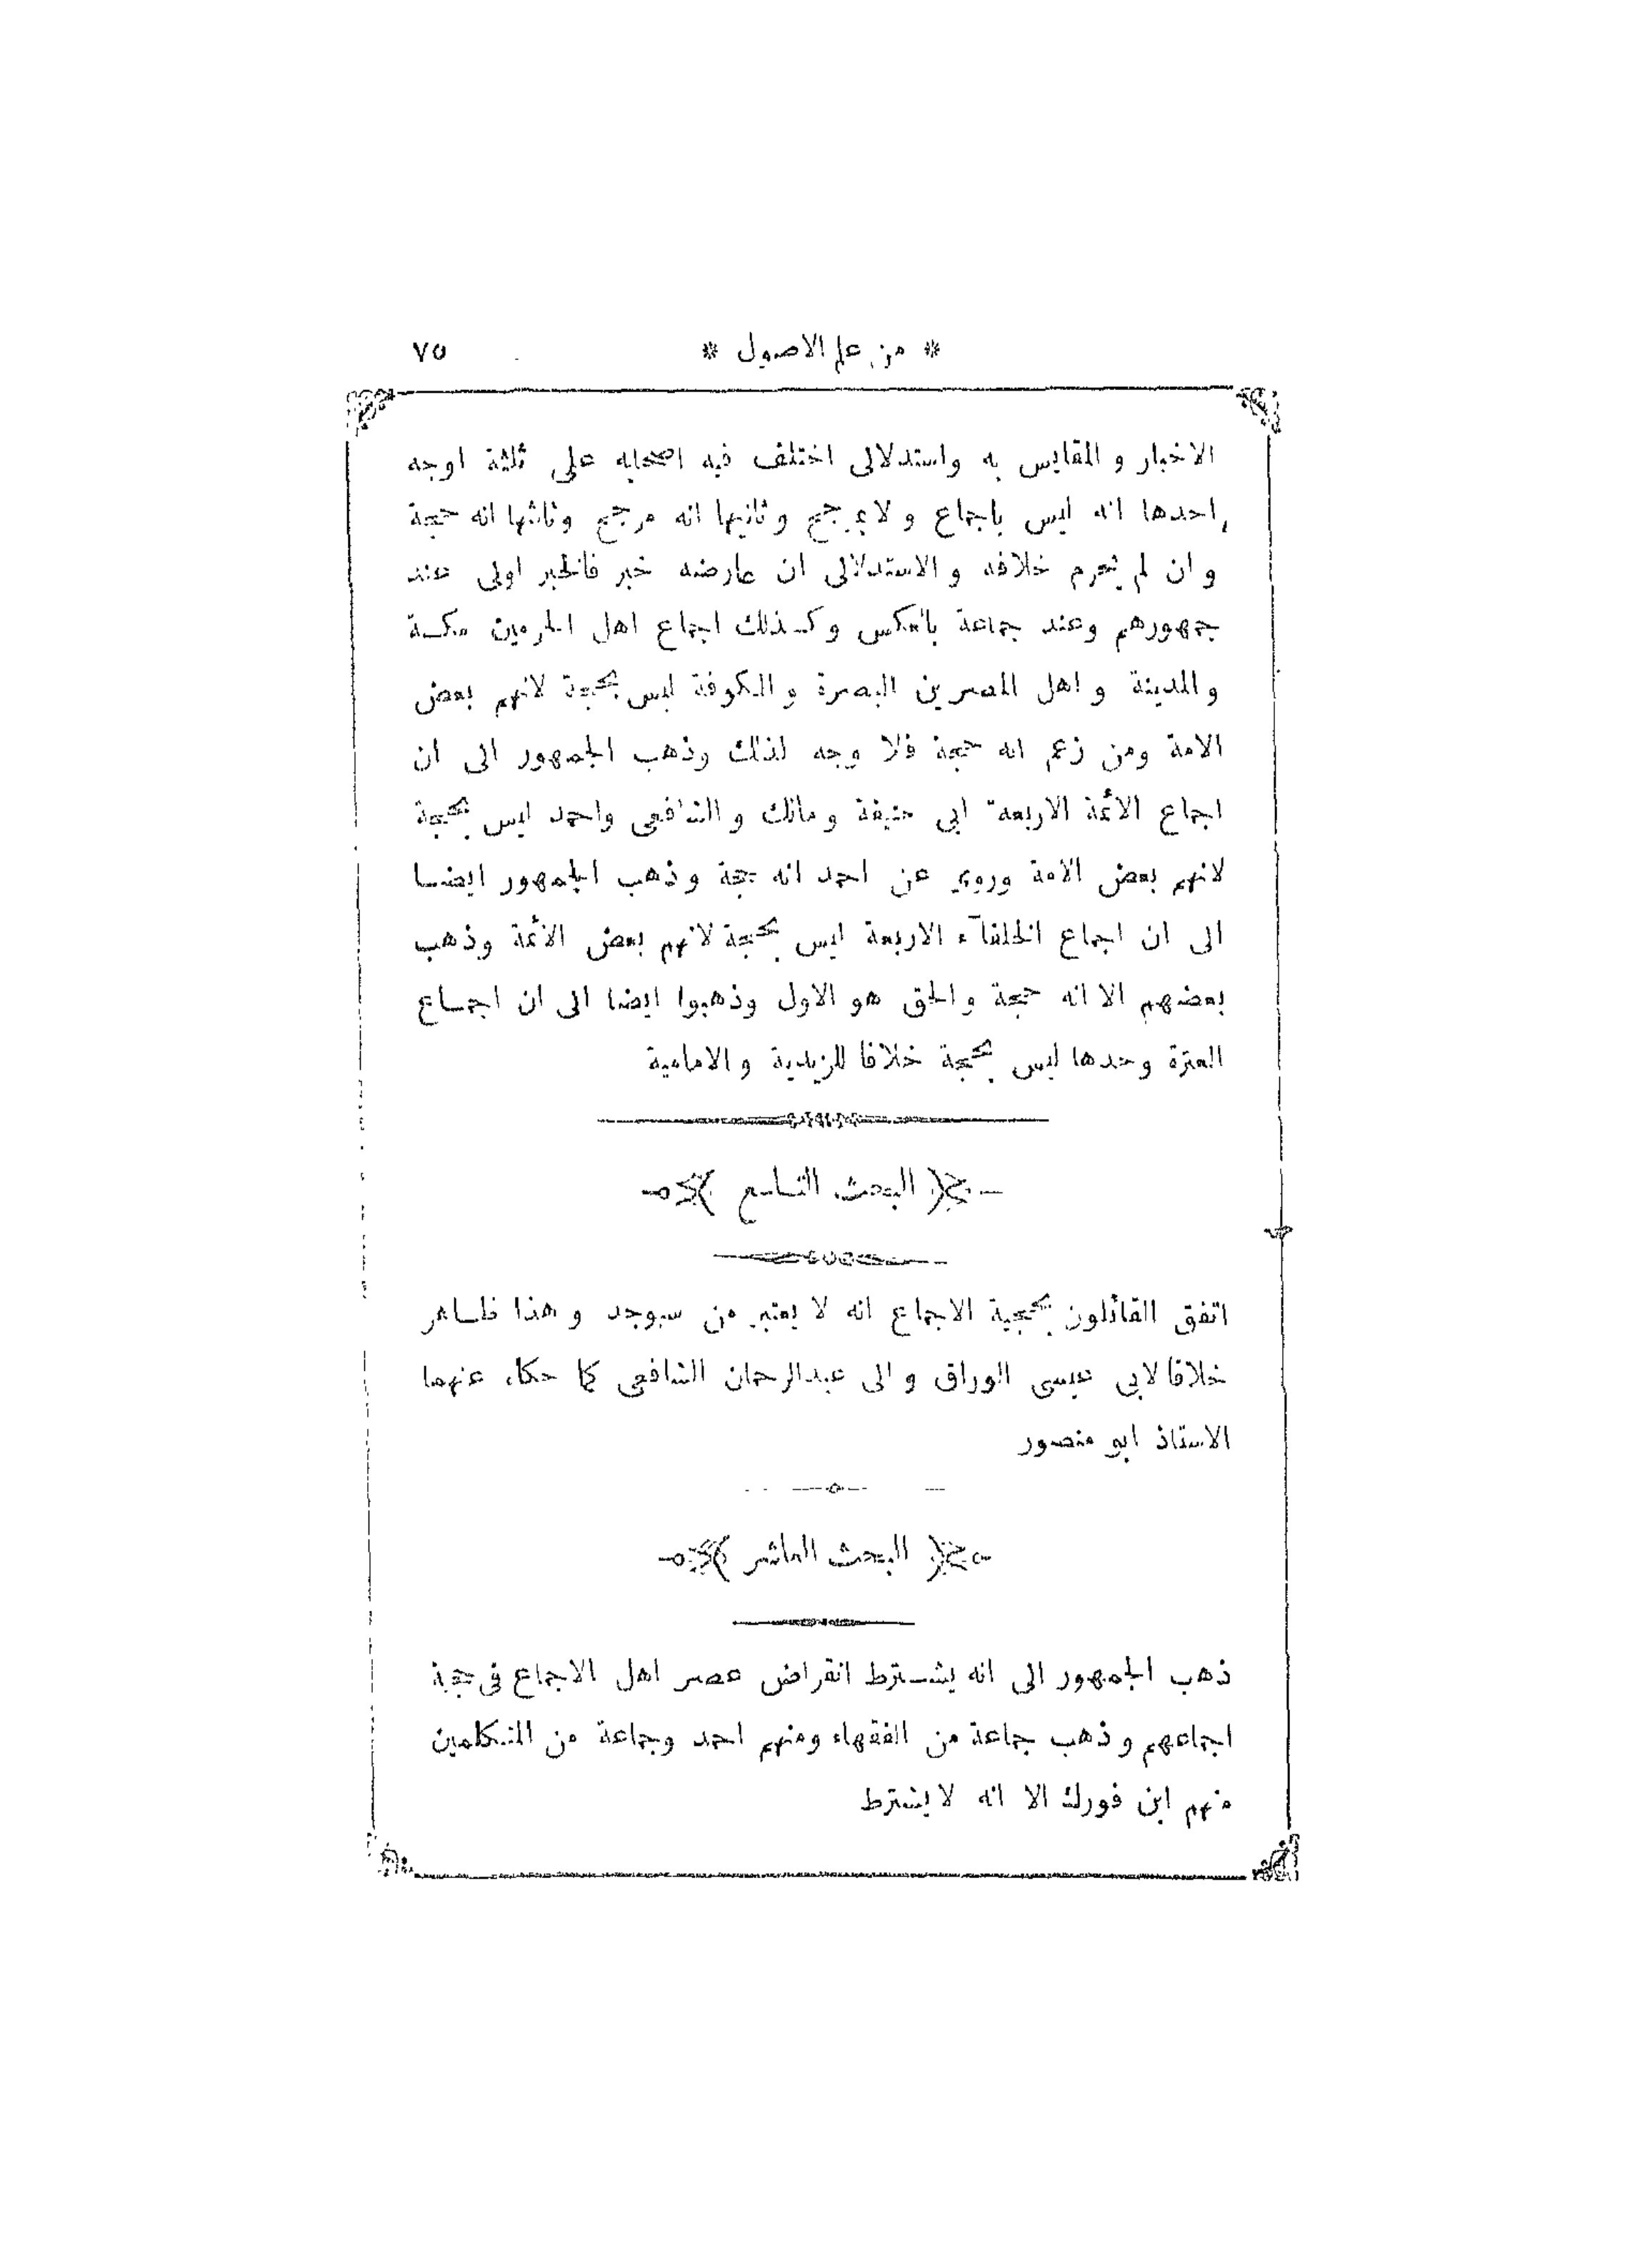 * من علم الاصول * ٧٥
الاخبار و المقايس به واستدلالى اختلف فيه اصحابه على ثلثة اوجه
احدها انه ليس باجماع و لا بمرجح وثانيها انه مرجح وثالثها انه حجة
و ان لم يحرم خلافه و الاستدلالى ان عارضه خبر فالخبر اولى عند
جمهورهم وعند جماعة بالعكس وكذلك اجماع اهل الحرمين مكة
والمدينة و اهل المصرين البصرة و الكوفة ليس بحجة لانهم بعض
الامة ومن زعم انه حجة فلا وجه لذلك وذهب الجمهور الى ان
اجماع الائمة الاربعة ابى حنيفة ومالك والشافعى واحمد ليس بحجة
لانهم بعض الامة وروى عن احمد انه حجة وذهب الجمهور ايضا
الى ان اجماع الخلفآء الاربعة ليس بحجة لانهم بعض الائمة وذهب
بعضهم الا انه حجة والحق هو الاول وذهبوا ايضا الى ان اجماع
العترة وحدها ليس بحجة خلافا للزيدية والامامية
البحث التاسع
اتفق القائلون بحجية الاجماع انه لا يعتبر من سيوجد وهذا ظاهر
خلافا لابى عيسى الوراق والى عبدالرحمان الشافعى كما حكاه عنهما
الاستاذ ابو منصور
البحث العاشر
ذهب الجمهور الى انه يشترط انقراض عصر اهل الاجماع فى حجية
اجماعهم وذهب جماعة من الفقهاء ومنهم احمد وجماعة من المتكلمين
منهم ابن فورك الا انه لا يشترط